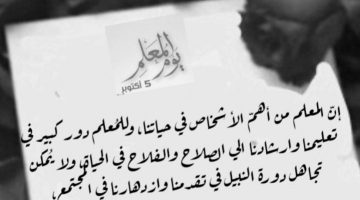 يوم المعلم
5 أكتوبر
إنّ المعلم من أهمّ الأشخاص في حياتنا، وللمُعلم دور كبير في
تعليمنا وارشادنا الي الصلاح والفلاح في الحياة، ولا يمكن
تجاهل دورة النبيل في تقدمنا وازدهارنا في المجتمع،